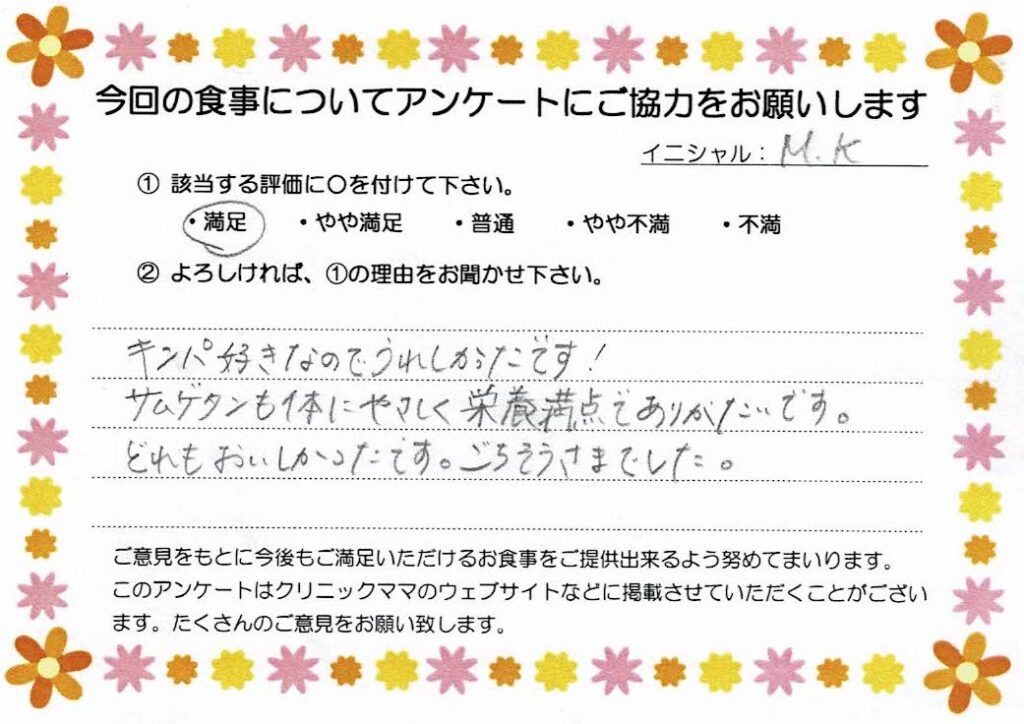 今回の食事についてアンケートにご協力をお願いします
イニシャル：M.K
① 該当する評価に〇を付けて下さい。
・満足 ・やや満足 ・普通 ・やや不満 ・不満
② よろしければ、①の理由をお聞かせ下さい。
キンパ好きなのでうれしかったです！
サムゲタンも体にやさしく栄養満点でありがたいです。
どれもおいしかったです。ごちそうさまでした。
ご意見をもとに今後もご満足いただけるお食事をご提供出来るよう努めてまいります。
このアンケートはクリニックママのウェブサイトなどに掲載させていただくことがござい
ます。たくさんのご意見をお願い致します。